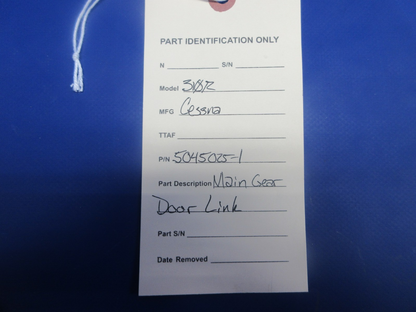 PART IDENTIFICATION ONLY
N ________ S/N ________
Model 310R
MFG Cessna
TTAF ________
P/N 5045025-1
Part Description Main Gear
Door Link
Part S/N ________
Date Removed ________